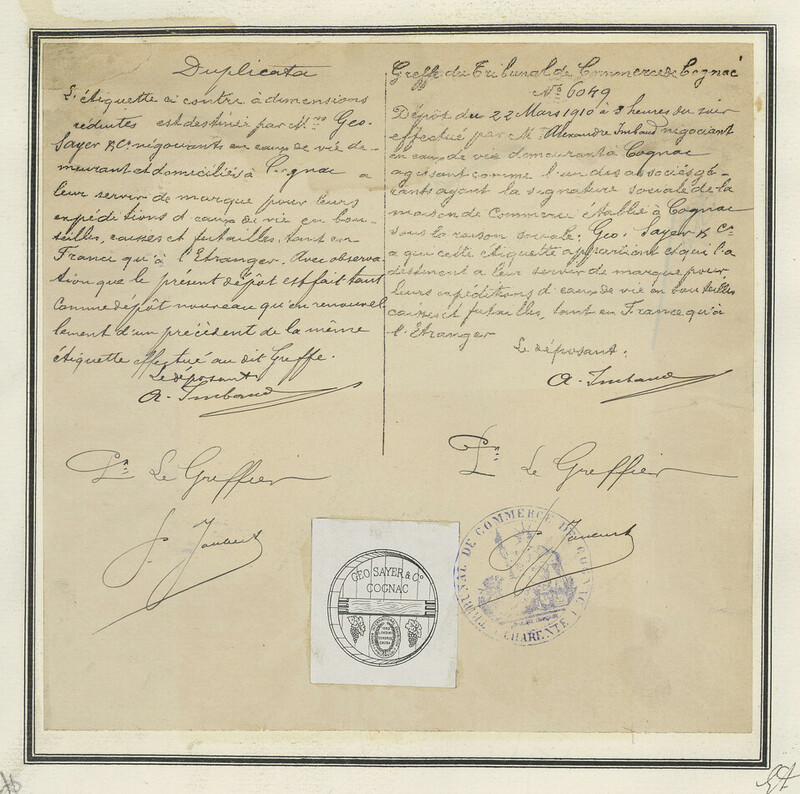 Duplicata
L'étiquette ci contre à dimensions
réduites est destinée par M.rs Geo.
Sayer & Cº négociants en eaux de vie de-
meurant et domiciliés à Cognac a
leur servir de marque pour leurs
expéditions d'eaux de vie en bou-
teilles, caisses et futailles, tant en
France qu'à l'Etranger. Avec observa-
tion que le présent dépôt est fait tant
comme dépôt nouveau qu'en renouvel
lement d'un précédent de la même
étiquette effectué au dit Greffe.
Le déposant
A. Imbaud
Pr. Le Greffier
Greffe du Tribunal de Commerce de Cognac
Nº 6049
Dépôt du 22 Mars 1910 à 3 heures du soir
effectué par M. Alexandre Imbaud négociant
en eaux de vie demeurant à Cognac
agissant comme l'un des associés gé-
rants ayant la signature sociale de la
maison de Commerce établie à Cognac
sous la raison sociale: Geo. Sayer & Cº
a qui cette étiquette appartient et qui l'a
destinent a leur servir de marque pour
leurs expéditions d'eaux de vie en bouteilles
caisses et futailles, tant en France qu'à
l'Etranger
Le déposant.
A. Imbaud
Pr. Le Greffier
GEO SAYER & Cº
COGNAC
TRIBUNAL DE COMMERCE DE COGNAC
CHARENTE